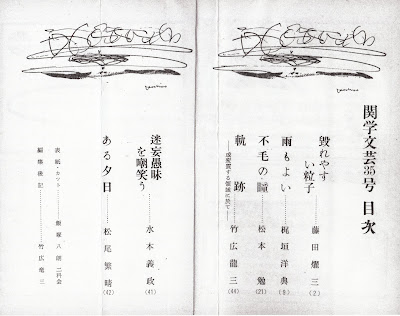 関学文芸35号 目次
毀れやす
い粒子 藤田燿三 (2)
雨もよい 梶垣洋典 (9)
不毛の瞳 松本勉 (21)
軌跡 竹広龍三 (44)
迷妄愚昧
を嘲笑う 水本義政 (41)
ある夕日 松尾繁晴 (42)
表紙・カット 二科会
編集後記 竹広竜三